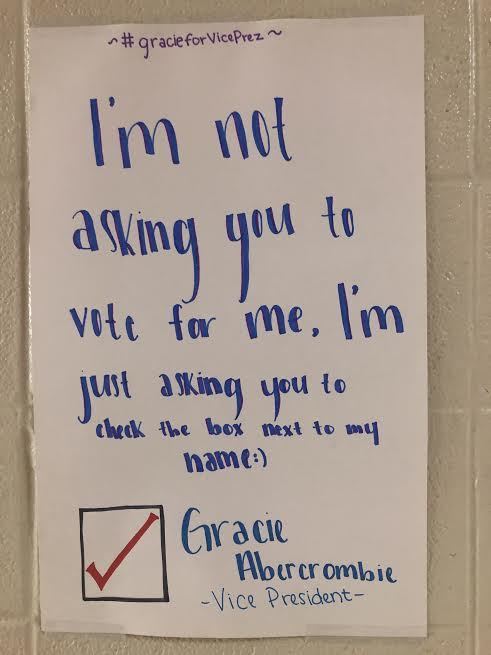 ~#gracieforVicePrez~
I'm not
asking you to
vote for me, I'm
just asking you to
check the box next to my
name:)
Gracie
Abercrombie
-Vice President-